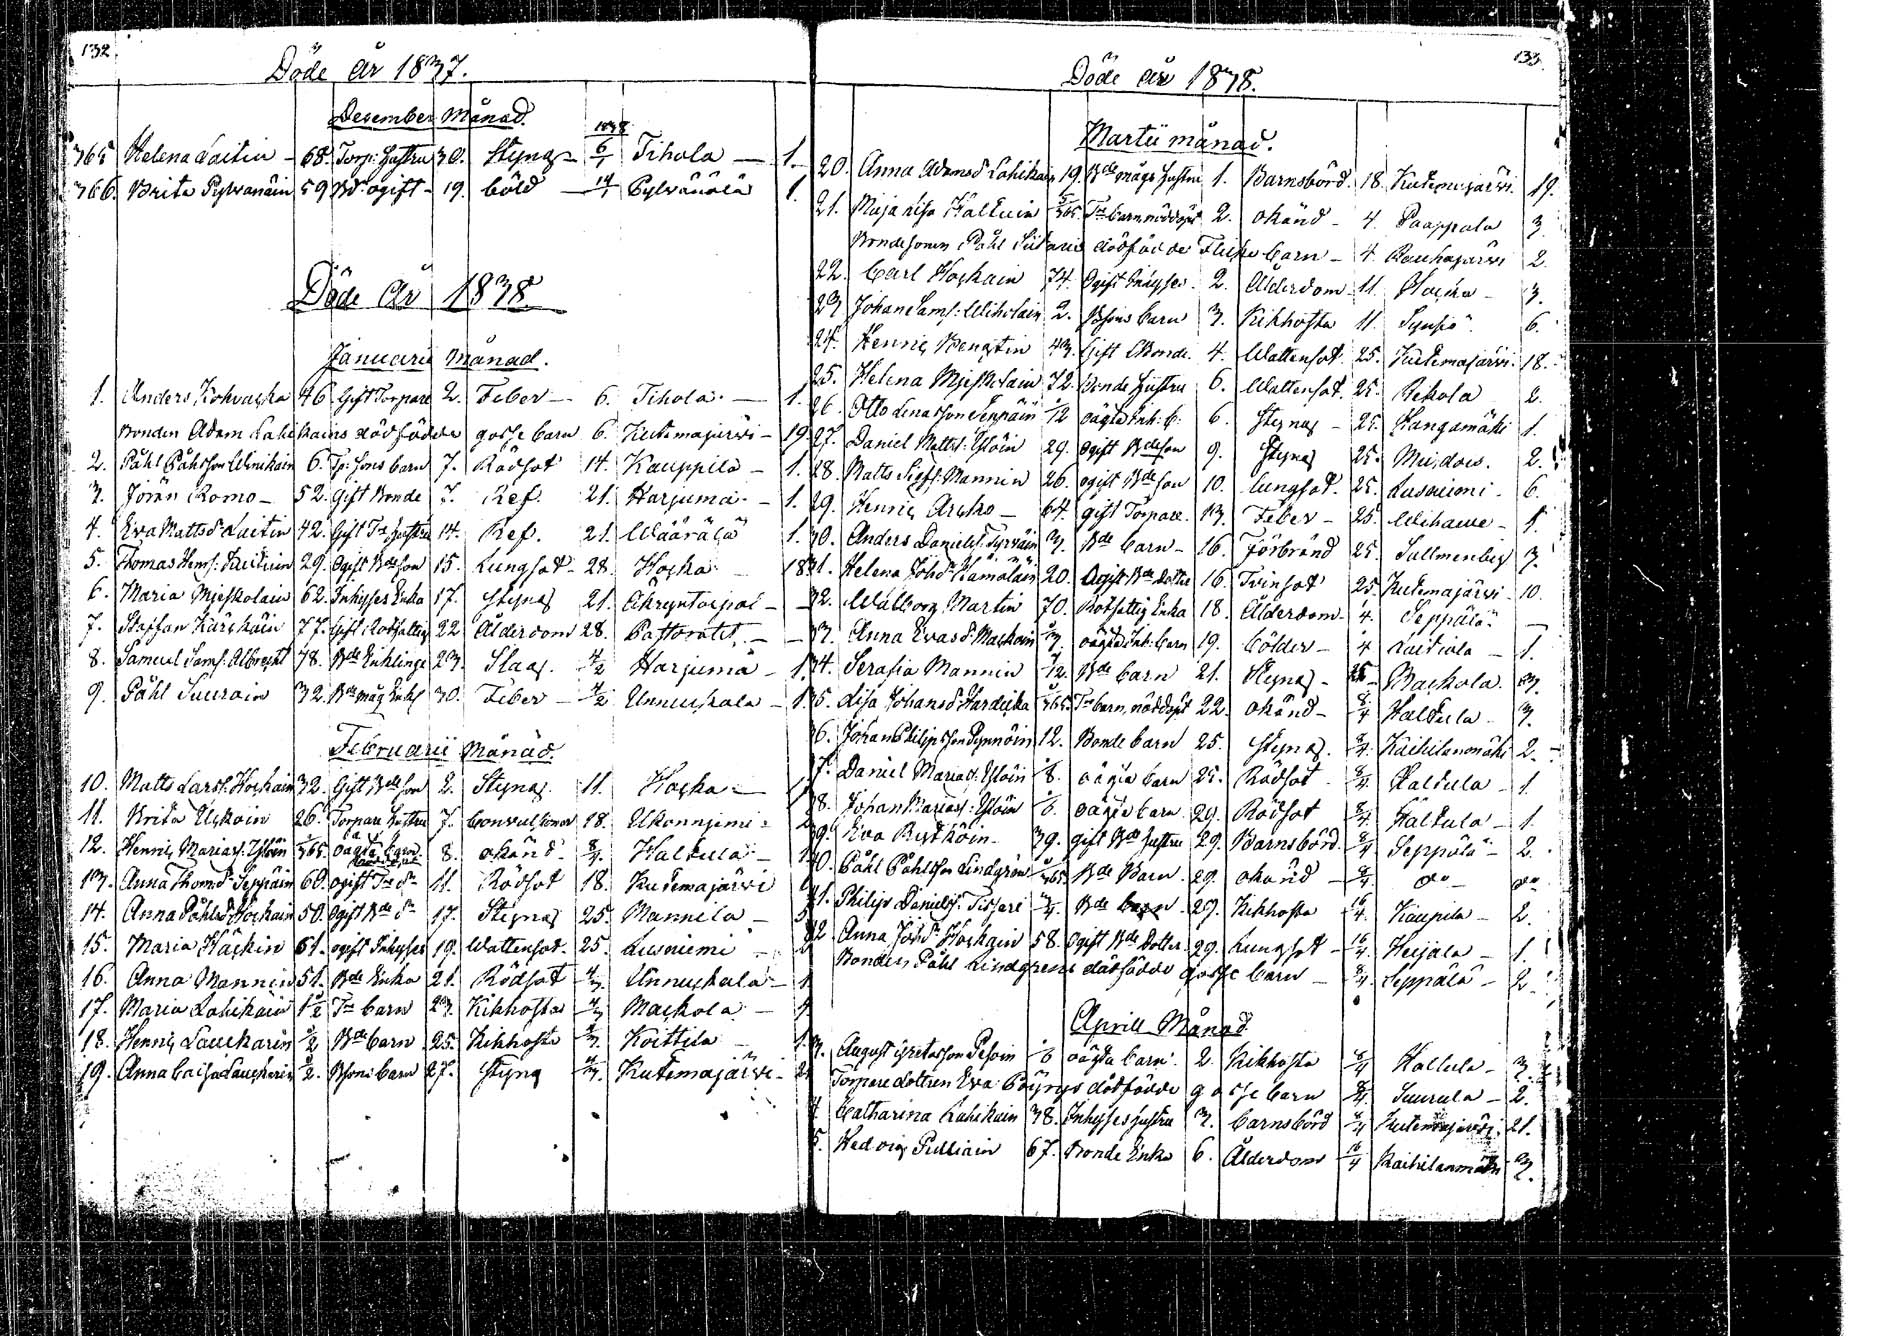 132
Döde år 1837.
December Månad.
1838
365 Helena Laitin – 68. Torp: Hustru 30. Styng – 6/1 Tihola – 1.
366. Brita Pylvänäin 59 Bd. ogift – 19. böld – 14/1 Pylvänälä 1.
Döde År 1838
Januarii Månad.
1. Anders Kohvacka 46 Gift Torpare 2. Feber – 6. Tihola. – 1.
Bonden Adam Lahikains dödfödde gosse barn 6. Kutemajärvi – 19.
2. Påhl Påhlsson Winikain 6. Tp: sons barn 7. Rödsot 14. Kauppila – 1.
3. Jörän Romo – 52. Gift Bonde 7. Ref. 21. Harjuma. – 1.
4. Eva Mattsd Laitin 42. Gift Tre Hustru 14. Ref. 21. Wäärälä 1.
5. Thomas Hens: 29. Ogift Bdeson 15. Lungsot – 28. Hoska – 18
6. Maria Mjeskolain 62. Inhyses Enka 17. Styng 21.
7. Staffan Kärckäin 77. Gift Rotfattig 22 Ålderdom 28. –
8. Samuel Sams: Albrecht 78. Bde Enkling 23. Slag. 4/2 Harjumä – 1.
9. Påhl Suurain 32. Bde måg Enkl 30. Feber – 4/2 Unnuckala – 1
Februarii Månad.
10. Matts Larss: Hoskain 32. Gift Bdeson 2. Styng. 11. Hoska – 1
11. Brita Uskain 26. Torpare Hustru 7. Convulsioner 18. Ukonniemi
12. Henric Marias: Ylöin 5/365 oägta barn nöddöpt 8. okänd 8/4 Haltula –
13. Anna Thomsd Seppäin 60. ogift 11. Rödsot 18. Kutemajärvi
14. Anna Påhlsd Hoskain 50. Ogift Bde dr 17. Styng 25. Mannila – 5
15. Maria Häckin 61. ogift Inhyses 19. Wattensot. 25. Lusniemi –
16. Anna Mannin 51. Bde Enka 21. Rödsot 4/3 Unnuckala – 1
17. Maria Lahikain 1 1/2 Tre barn 23. Kikhosta 4/3 Mackola –
18. Henric Lauckarin 1/2 Bde barn 25. Kikhosta 4/3 Koittila – 1
19. Anna Caisa Lauckarin 1/2. Bsons barn 27. Styng 4/3. Kutemajärvi – 21
133.
Döde År 1838.
Martii månad.
20. Anna Adamsd Lahikain 19. Bde mågs Hustru 1. Barnsbörd. 18. Kutemajärvi. 19.
21. Maja Lisa Haltuin 5/365. Tre barn nöddöpt 2. okänd – 4. Paappala 3
Bondesonen Påhl Siitaris dödfödde Flicko barn – 4. Rauhajärvi 2
22. Carl Hoskain 74. Ogift Inhyses. 2. Ålderdom – 11. Hoska – 3.
23 Johan Sams: Wiholain 2. Bsons barn 3. Kikhosta 11. Synsiö 6.
24. Henric Bengtin 43. Gift Bonde. 4. Wattensot 25. Kutemajärvi. 18.
25. Helena Mjeskolain 72. Bonde Hustru 6. Wattensot. 25. Rekola 2.
26. Otto Lenasson Seppäin 1/12 oägta Inh. B. 6. Styng – 25. Kangamäki 1.
27. Daniel Matts: Ylöin 29. Ogift Bdeson 9. Styng 25. 2.
28. Matts Sigf: Mannin 26. ogift Bdeson 10. Lungsot. 25. Lusniemi. 6.
29. Henric Arcko – 64. gift Torpare. 13. Feber – 25. Wihawe – 1.
30. Anders Daniels: Tyrväin 3. Bde barn – 16. Förbränd 25. Sallmenkylä 3.
31. Helena Johsd Hämäläin 20. Ogift Bde Dotter 16. Tvinsot 25. Kutemajärvi. 10.
32. Walborg Martin 70. Rotfattig Enka 18. Ålderdom. 4. Seppälä. –
33. Anna Evasd Mackoin oägta Inh: barn 19. Bölder – 4 Laitiala – 1.
34. Serafia Mannin 12. Bde barn 21. Styng – 25 – Mackola. 3.
35. Lisa Johansd Harducka 365. Tre barn, nöddöpt 22. okänd – 8/4 Haltula – 3.
36. Johan Philipsson Pynnöin 12. Bonde barn 25. Styng. 8/4. Kaihilanmäki 2. –
37. Daniel Marias: Ylöin 8. oägta barn 25. Rödsot – 8/4 Haltula – 1.
38. Johan Marias: Ylöin 6. oägta barn 29. Rödsot 8/4 Haltula – 1.
39. Eva 39. gift Bde Hustru 29. Barnsbörd 8/4 Seppälä – 2.
40. Påhl Påhlsson Lindgren 365 Bde Barn. 29. okänd – 8/4. do – do
41. Philip Daniels: Tissari 3/4. Bde barn 29. Kikhosta 16/4. Kaupila – 2.
42 Anna Johsd Hoskain 58. Ogift Bde Dotter. 29. Lungsot – 16/4 Heijala – 1.
Bonden Påhl Lindgrens dödfödde gosse barn – 8/4. Seppälä – 2.
Aprill Månad
3. August Gretasson Pesoin 6 oägta barn. 2. Kikhosta 8/4 Haltula – 3.
Torpare dottren Eva Pöyrys dödfödde gosse barn 8/4. Suurula – 2.
4 Catharina Lahikain 38. Inhyses hustru 3. barnsbörd 8/4 Kutemajärvi 21.
5. Hedvig Pulliain 67. Bonde Enka 6. Ålderdom 16/4 Kaihilanmäki 3.